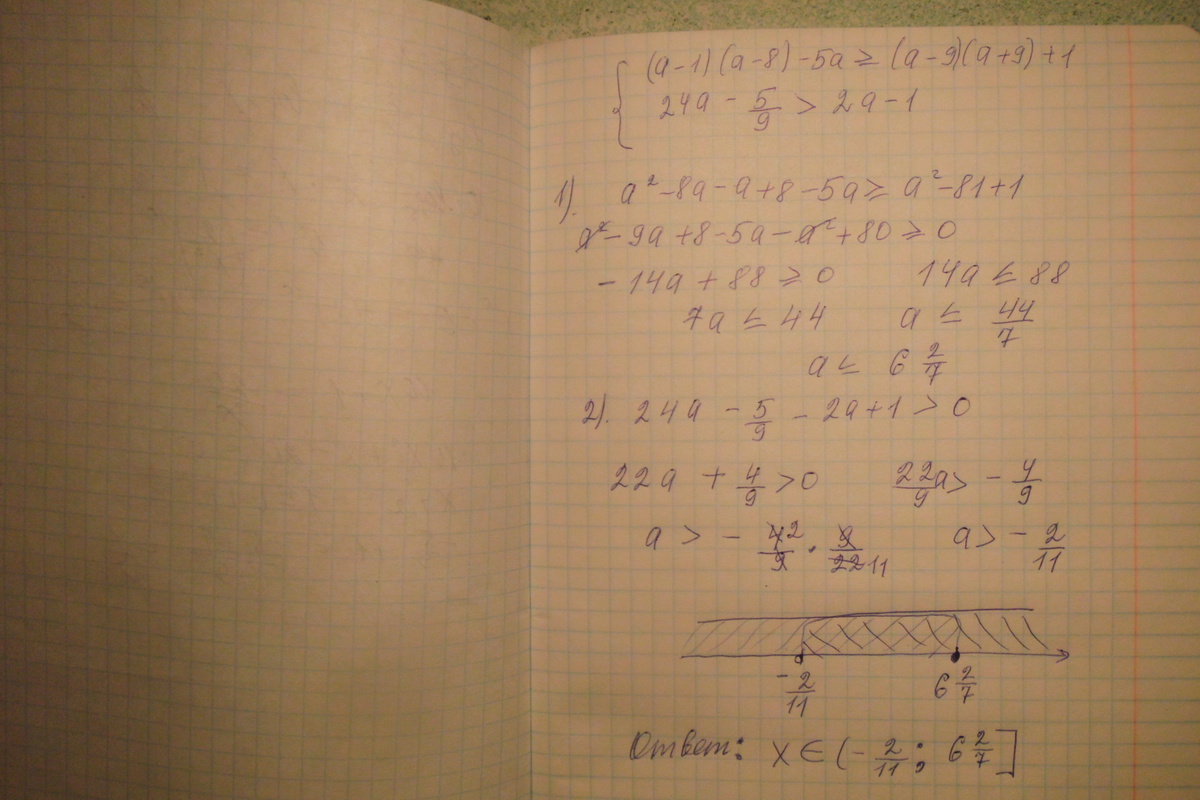 (a-1)(a-8)-5a ≥ (a-9)(a+9)+1
24a - 5/9 > 2a-1
1). a²-8a-a+8-5a ≥ a²-81+1
a²-9a+8-5a-a²+80 ≥ 0
-14a+88 ≥ 0 14a ≤ 88
7a ≤ 44 a ≤ 44/7
a ≤ 6 2/7
2). 24a - 5/9 - 2a+1 > 0
22a + 4/9 > 0 22/9 a > - 4/9
a > - 4 2/9 · 9/22 11 a > - 2/11
- 2/11 6 2/7
Ответ: x ∈ (- 2/11 ; 6 2/7]